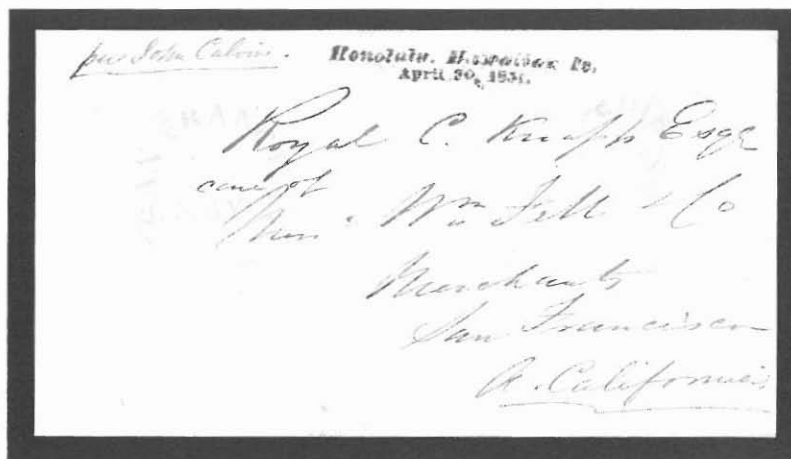 per John Calvin.
Honolulu, Hawaiian Is.
April 30, 1851.
Royal C. Knapp Esqr
care of
Wm Fell & Co
Merchants
San Francisco
California